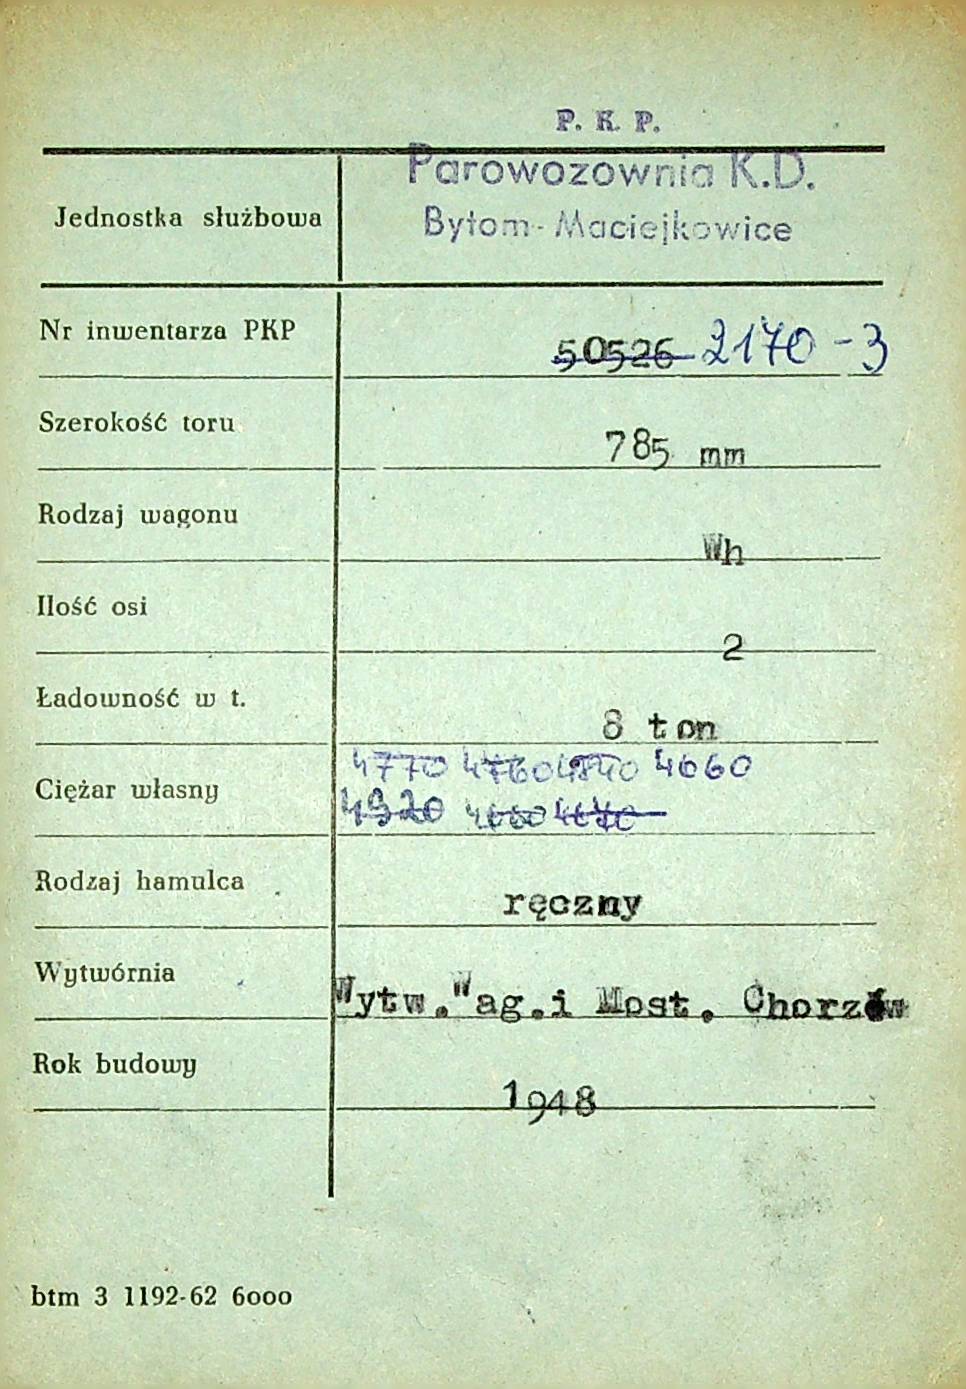 P. K. P.
Parowozownia K.D.
Bytom-Maciejkowice
Jednostka służbowa
Nr inwentarza PKP 50526 2170-3
Szerokość toru 785 mm
Rodzaj wagonu Wh
Ilość osi 2
Ładowność w t. 8 ton
4770 4760 4840 4660
Ciężar własny
4920 4660 4640
Rodzaj hamulca ręczny
Wytwórnia Wytw. Wag.i Most. Chorzów
Rok budowy 1948
btm 3 1192-62 6000